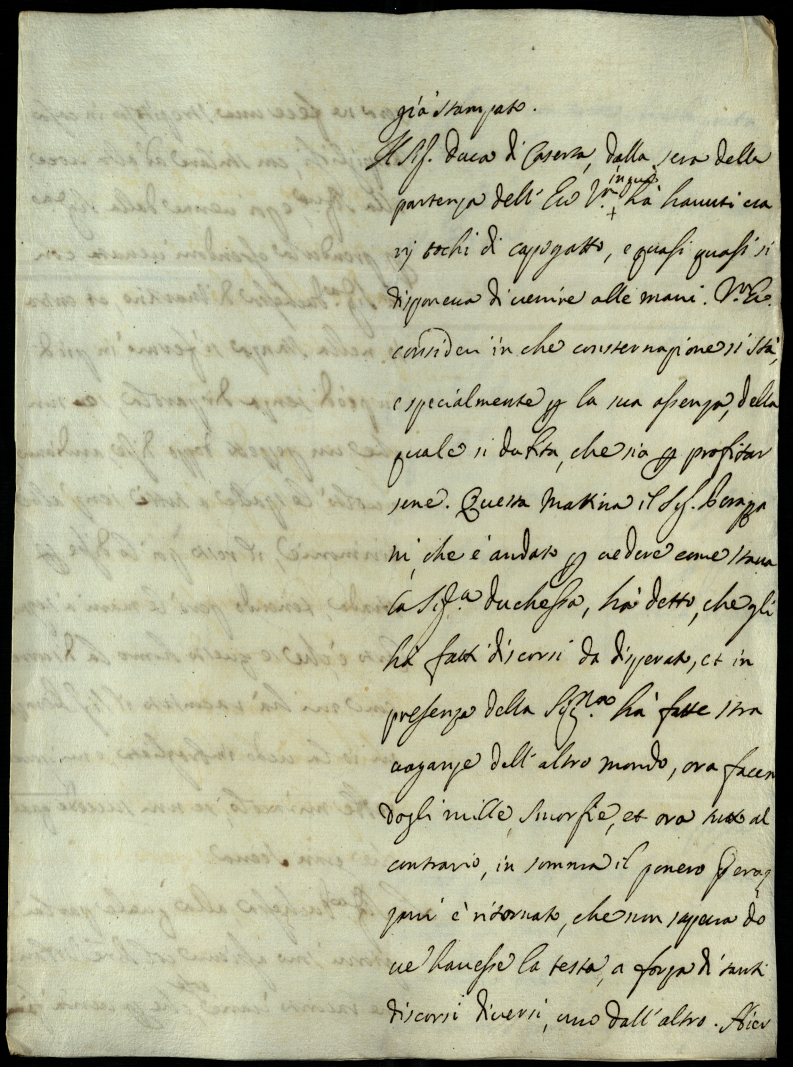 già stampato.
Il Sig. Duca di Caserta, dalla sera della
partenza dell' Ecc. Vra. in qua hà hauuti ua
rij tochi di capogatto, e quasi quasi si
disponeua di uenire alle mani. V. Ecc.
consideri in che consternazione si stà,
e specialmente p la sua assenza, della
quale si dubita, che sia p profitar
sene. Questa mattina il Sig. Perazza
ni, che è andato p uedere come staua
la Sig.a Duchessa, hà detto, che gli
hà fatti discorsi da disperato, et in
presenza della Sig.ra hà fatte stra
uaganze dell' altro mondo, ora facen
dogli mille smorfie, et ora tutto al
contrario, in somma il pouero Peraz
zani è ritornato, che non sapeua do
ue hauesse la testa, a forza di tanti
discorsi diuersi, uno dall' altro. Hier